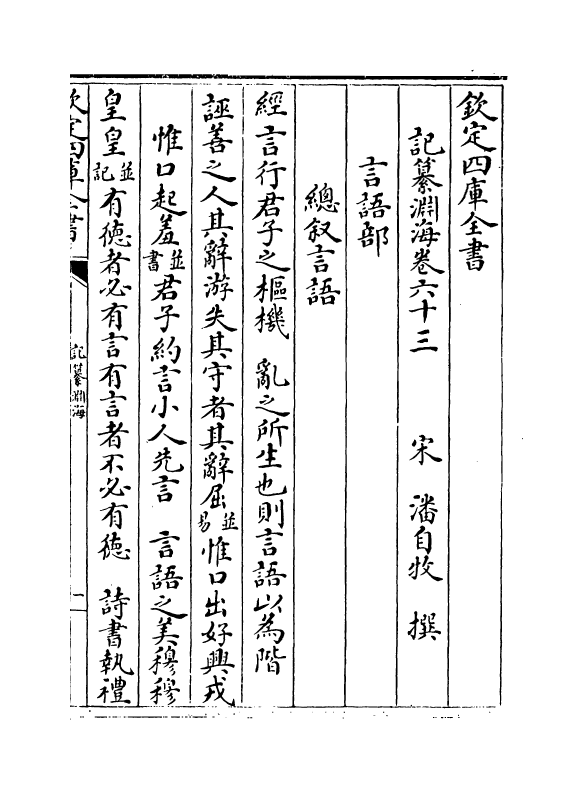 欽定四庫全書
記纂淵海卷六十三　宋　潘自牧　撰
言語部
總叙言語
經言行君子之樞機　亂之所生也則言語以為階
誣善之人其辭游失其守者其辭屈並易惟口出好興戎
惟口起羞並書君子約言小人先言　言語之美穆穆
皇皇並記有徳者必有言有言者不必有徳　詩書執禮
欽定四庫全書
記纂淵海
一